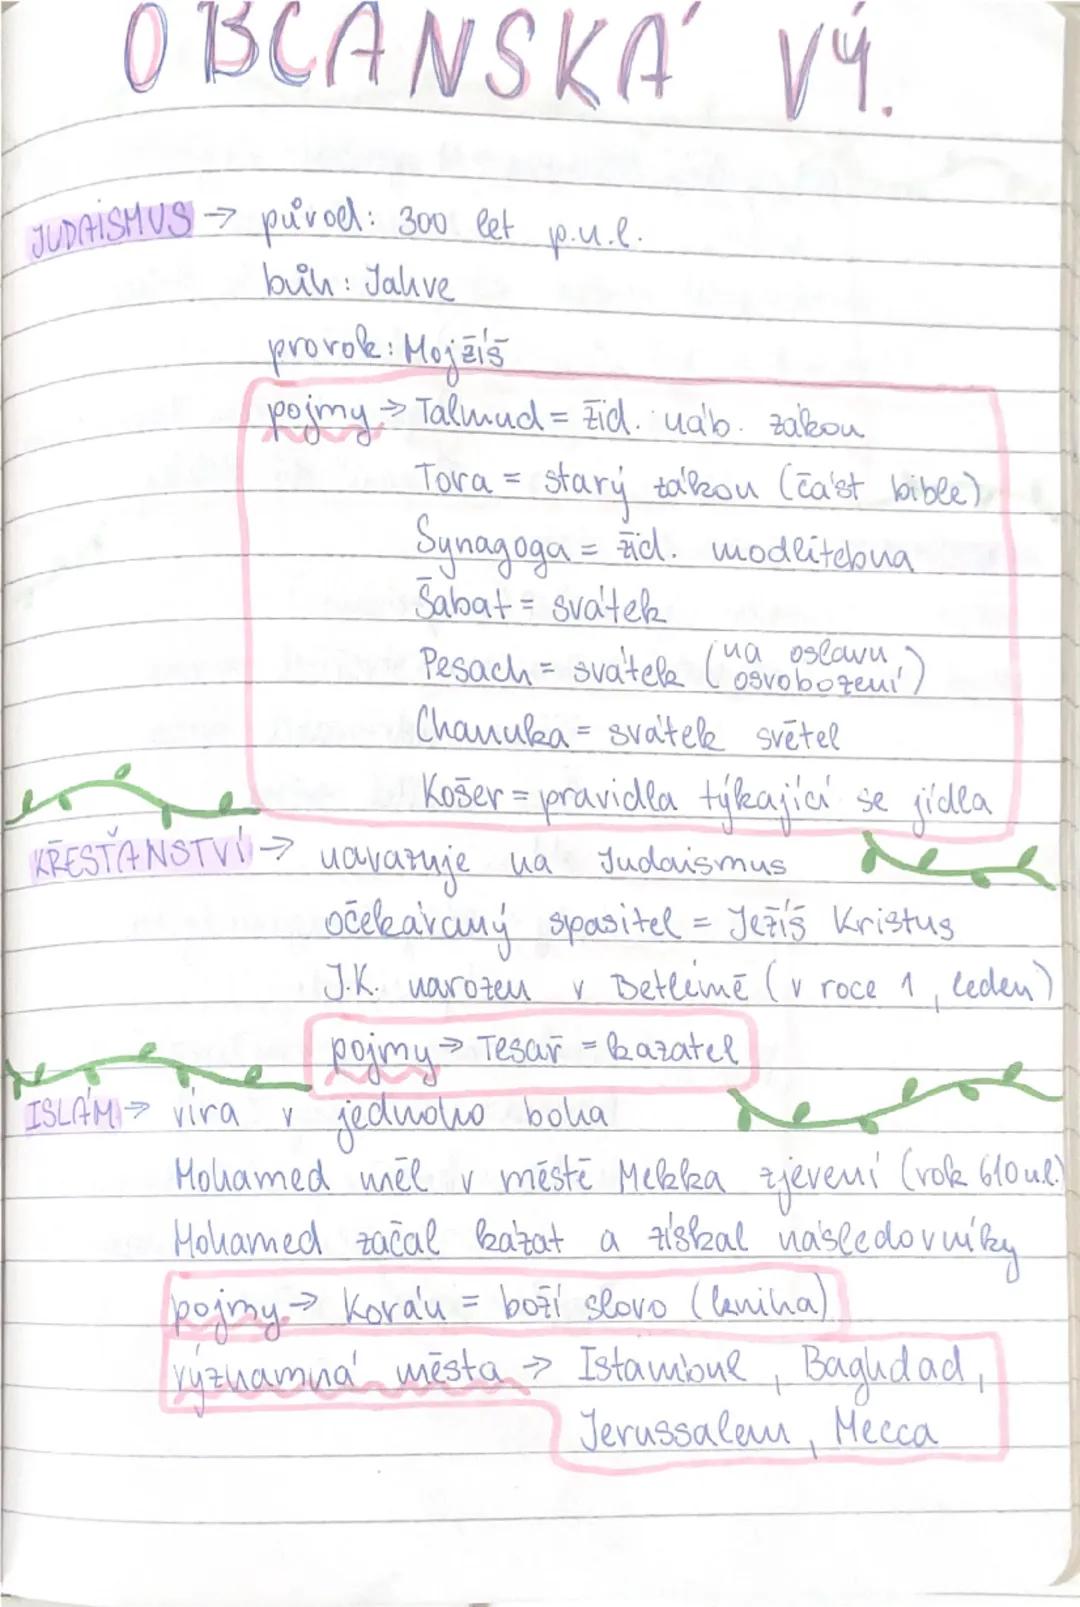 OBČANSKÁ VÝ.
JUDAISMUS → původ: 300 let p.n.l.
bůh: Jahve
prorok: Mojžíš
pojmy → Talmud = žid. náb. zákon
Tora = starý zákon (část bible)
Synagoga = žid. modlitebna
Šabat = svátek
Pesach = svátek (na oslavu osvobození)
Chanuka = svátek světel
Košer = pravidla týkající se jídla
KŘESŤANSTVÍ → navazuje na Judaismus
očekávaný spasitel = Ježíš Kristus
J.K. narozen v Betlémě (v roce 1, leden)
pojmy → Tesař = kazatel
ISLÁM → víra v jednoho boha
Mohamed měl v městě Mekka zjevení (rok 610 n.l.)
Mohamed začal kázat a získal následovníky
pojmy → Korán = boží slovo (kniha)
významná města → Istambul, Baghdad,
Jerussalem, Mecca